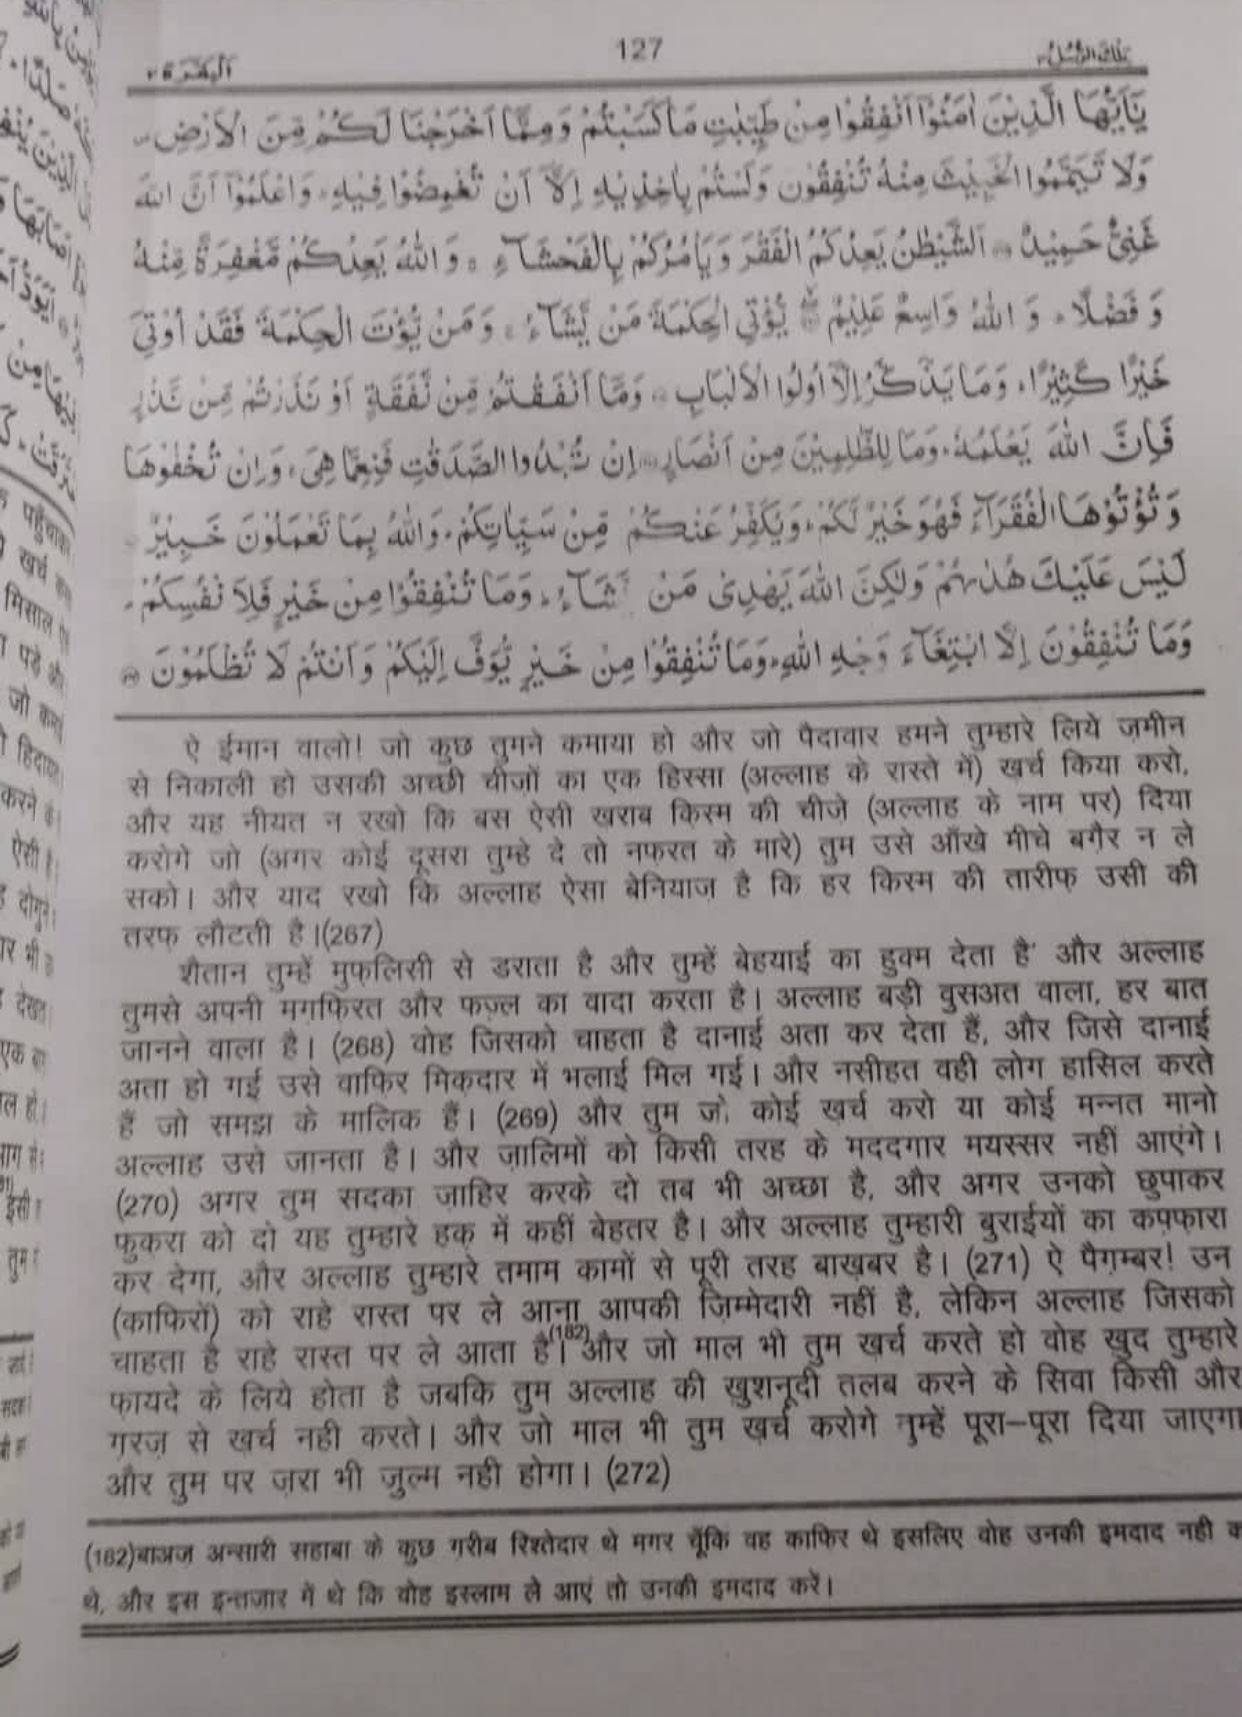 127
يَٰٓاَيُّهَا الَّذِيْنَ اٰمَنُوْٓا اَنْفِقُوْا مِنْ طَيِّبٰتِ مَا كَسَبْتُمْ وَ مِمَّآ اَخْرَجْنَا لَكُمْ مِّنَ الْاَرْضِ
وَلَا تَيَمَّمُوا الْخَبِيْثَ مِنْهُ تُنْفِقُوْنَ وَلَسْتُمْ بِاٰخِذِيْهِ اِلَّآ اَنْ تُغْمِضُوْا فِيْهِ وَاعْلَمُوْٓا اَنَّ اللّٰهَ
غَنِىٌّ حَمِيْدٌ اَلشَّيْطٰنُ يَعِدُكُمُ الْفَقْرَ وَ يَاْمُرُكُمْ بِالْفَحْشَآءِ وَاللّٰهُ يَعِدُكُمْ مَّغْفِرَةً مِّنْهُ
وَ فَضْلًا وَ اللّٰهُ وَاسِعٌ عَلِيْمٌ يُّؤْتِي الْحِكْمَةَ مَنْ يَّشَآءُ وَ مَنْ يُّؤْتَ الْحِكْمَةَ فَقَدْ اُوْتِيَ
خَيْرًا كَثِيْرًا وَمَا يَذَّكَّرُ اِلَّآ اُولُوا الْاَلْبَابِ وَمَآ اَنْفَقْتُمْ مِّنْ نَّفَقَةٍ اَوْ نَذَرْتُمْ مِّنْ نَّذْرٍ
فَاِنَّ اللّٰهَ يَعْلَمُهٗ وَمَا لِلظّٰلِمِيْنَ مِنْ اَنْصَارٍ اِنْ تُبْدُوا الصَّدَقٰتِ فَنِعِمَّا هِيَ وَاِنْ تُخْفُوْهَا
وَ تُؤْتُوْهَا الْفُقَرَآءَ فَهُوَ خَيْرٌ لَّكُمْ وَيُكَفِّرُ عَنْكُمْ مِّنْ سَيِّاٰتِكُمْ وَاللّٰهُ بِمَا تَعْمَلُوْنَ خَبِيْرٌ
لَيْسَ عَلَيْكَ هُدٰىهُمْ وَلٰكِنَّ اللّٰهَ يَهْدِىْ مَنْ يَّشَآءُ وَمَا تُنْفِقُوْا مِنْ خَيْرٍ فَلِاَنْفُسِكُمْ
وَمَا تُنْفِقُوْنَ اِلَّا ابْتِغَآءَ وَجْهِ اللّٰهِ وَمَا تُنْفِقُوْا مِنْ خَيْرٍ يُّوَفَّ اِلَيْكُمْ وَ اَنْتُمْ لَا تُظْلَمُوْنَ
ऐ ईमान वालो! जो कुछ तुमने कमाया हो और जो पैदावार हमने तुम्हारे लिये ज़मीन
से निकाली हो उसकी अच्छी चीज़ों का एक हिस्सा (अल्लाह के रास्ते में) खर्च किया करो,
और यह नीयत न रखो कि बस ऐसी खराब किस्म की चीजे (अल्लाह के नाम पर) दिया
करोगे जो (अगर कोई दूसरा तुम्हे दे तो नफरत के मारे) तुम उसे आँखे मीचे बग़ैर न ले
सको। और याद रखो कि अल्लाह ऐसा बेनियाज़ है कि हर किस्म की तारीफ़ उसी की
तरफ़ लौटती है।(267)
शैतान तुम्हें मुफ़लिसी से डराता है और तुम्हें बेहयाई का हुक्म देता है और अल्लाह
तुमसे अपनी मग़फिरत और फज़्ल का वादा करता है। अल्लाह बड़ी वुसअत वाला, हर बात
जानने वाला है। (268) वोह जिसको चाहता है दानाई अता कर देता हैं, और जिसे दानाई
अता हो गई उसे वाफिर मिक़दार में भलाई मिल गई। और नसीहत वही लोग हासिल करते
हैं जो समझ के मालिक हैं। (269) और तुम जो कोई खर्च करो या कोई मन्नत मानो
अल्लाह उसे जानता है। और ज़ालिमों को किसी तरह के मददगार मयस्सर नहीं आएंगे।
(270) अगर तुम सदका ज़ाहिर करके दो तब भी अच्छा है, और अगर उनको छुपाकर
फुकरा को दो यह तुम्हारे हक़ में कहीं बेहतर है। और अल्लाह तुम्हारी बुराईयों का कफ़्फारा
कर देगा, और अल्लाह तुम्हारे तमाम कामों से पूरी तरह बाख़बर है। (271) ऐ पैग़म्बर! उन
(काफिरों) को राहे रास्त पर ले आना आपकी ज़िम्मेदारी नहीं है, लेकिन अल्लाह जिसको
चाहता है राहे रास्त पर ले आता है।(182) और जो माल भी तुम खर्च करते हो वोह खुद तुम्हारे
फ़ायदे के लिये होता है जबकि तुम अल्लाह की ख़ुशनूदी तलब करने के सिवा किसी और
ग़रज़ से खर्च नही करते। और जो माल भी तुम ख़र्च करोगे तुम्हें पूरा–पूरा दिया जाएगा
और तुम पर ज़रा भी ज़ुल्म नही होगा। (272)
(182)बाअज अन्सारी सहाबा के कुछ ग़रीब रिश्तेदार थे मगर चूँकि वह काफिर थे इसलिए वोह उनकी इमदाद नही
थे, और इस इन्तज़ार में थे कि वोह इस्लाम ले आएं तो उनकी इमदाद करें।